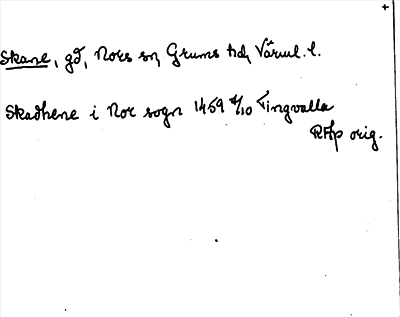 +
Skane, gd, Nors sn, Grums hd, Värml. l.
Skadhene i Nor sogn 1459 4/10 Tingvalla
RAp orig.